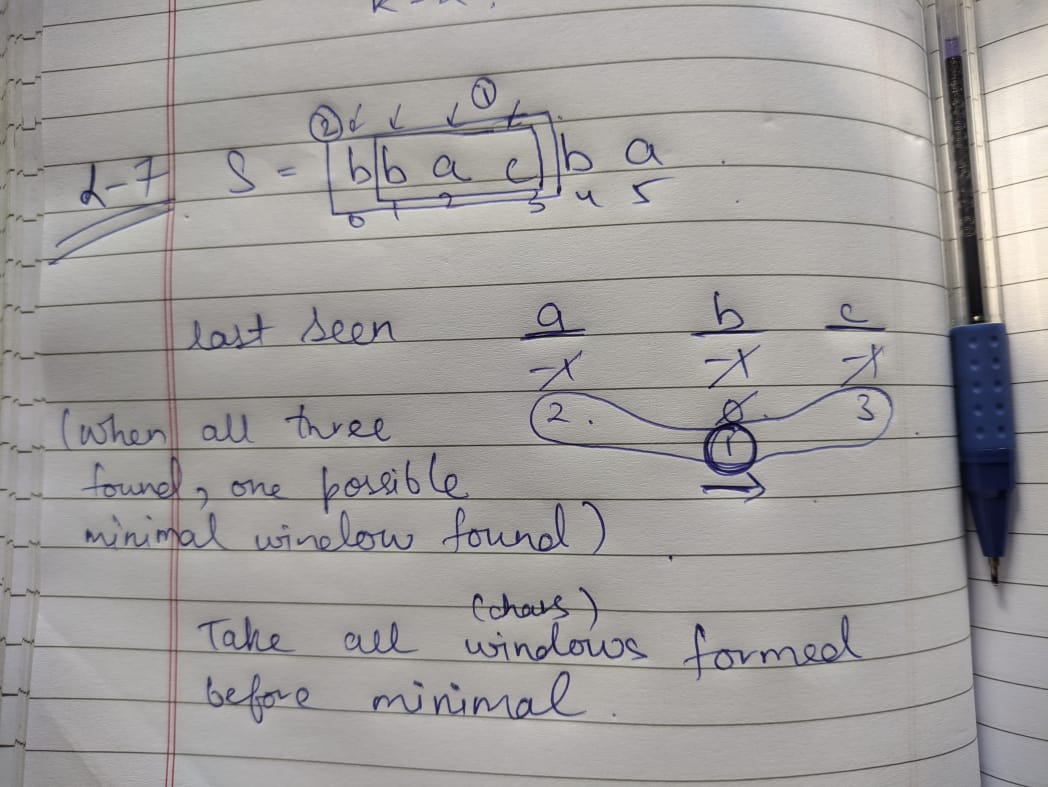 L-7 S = b b a c b a
0 1 2 3 4 5
last seen a b c
-1 -1 -1
(when all three 2. 0. 3
found, one possible 1
minimal window found)
(chars)
Take all windows formed
before minimal.